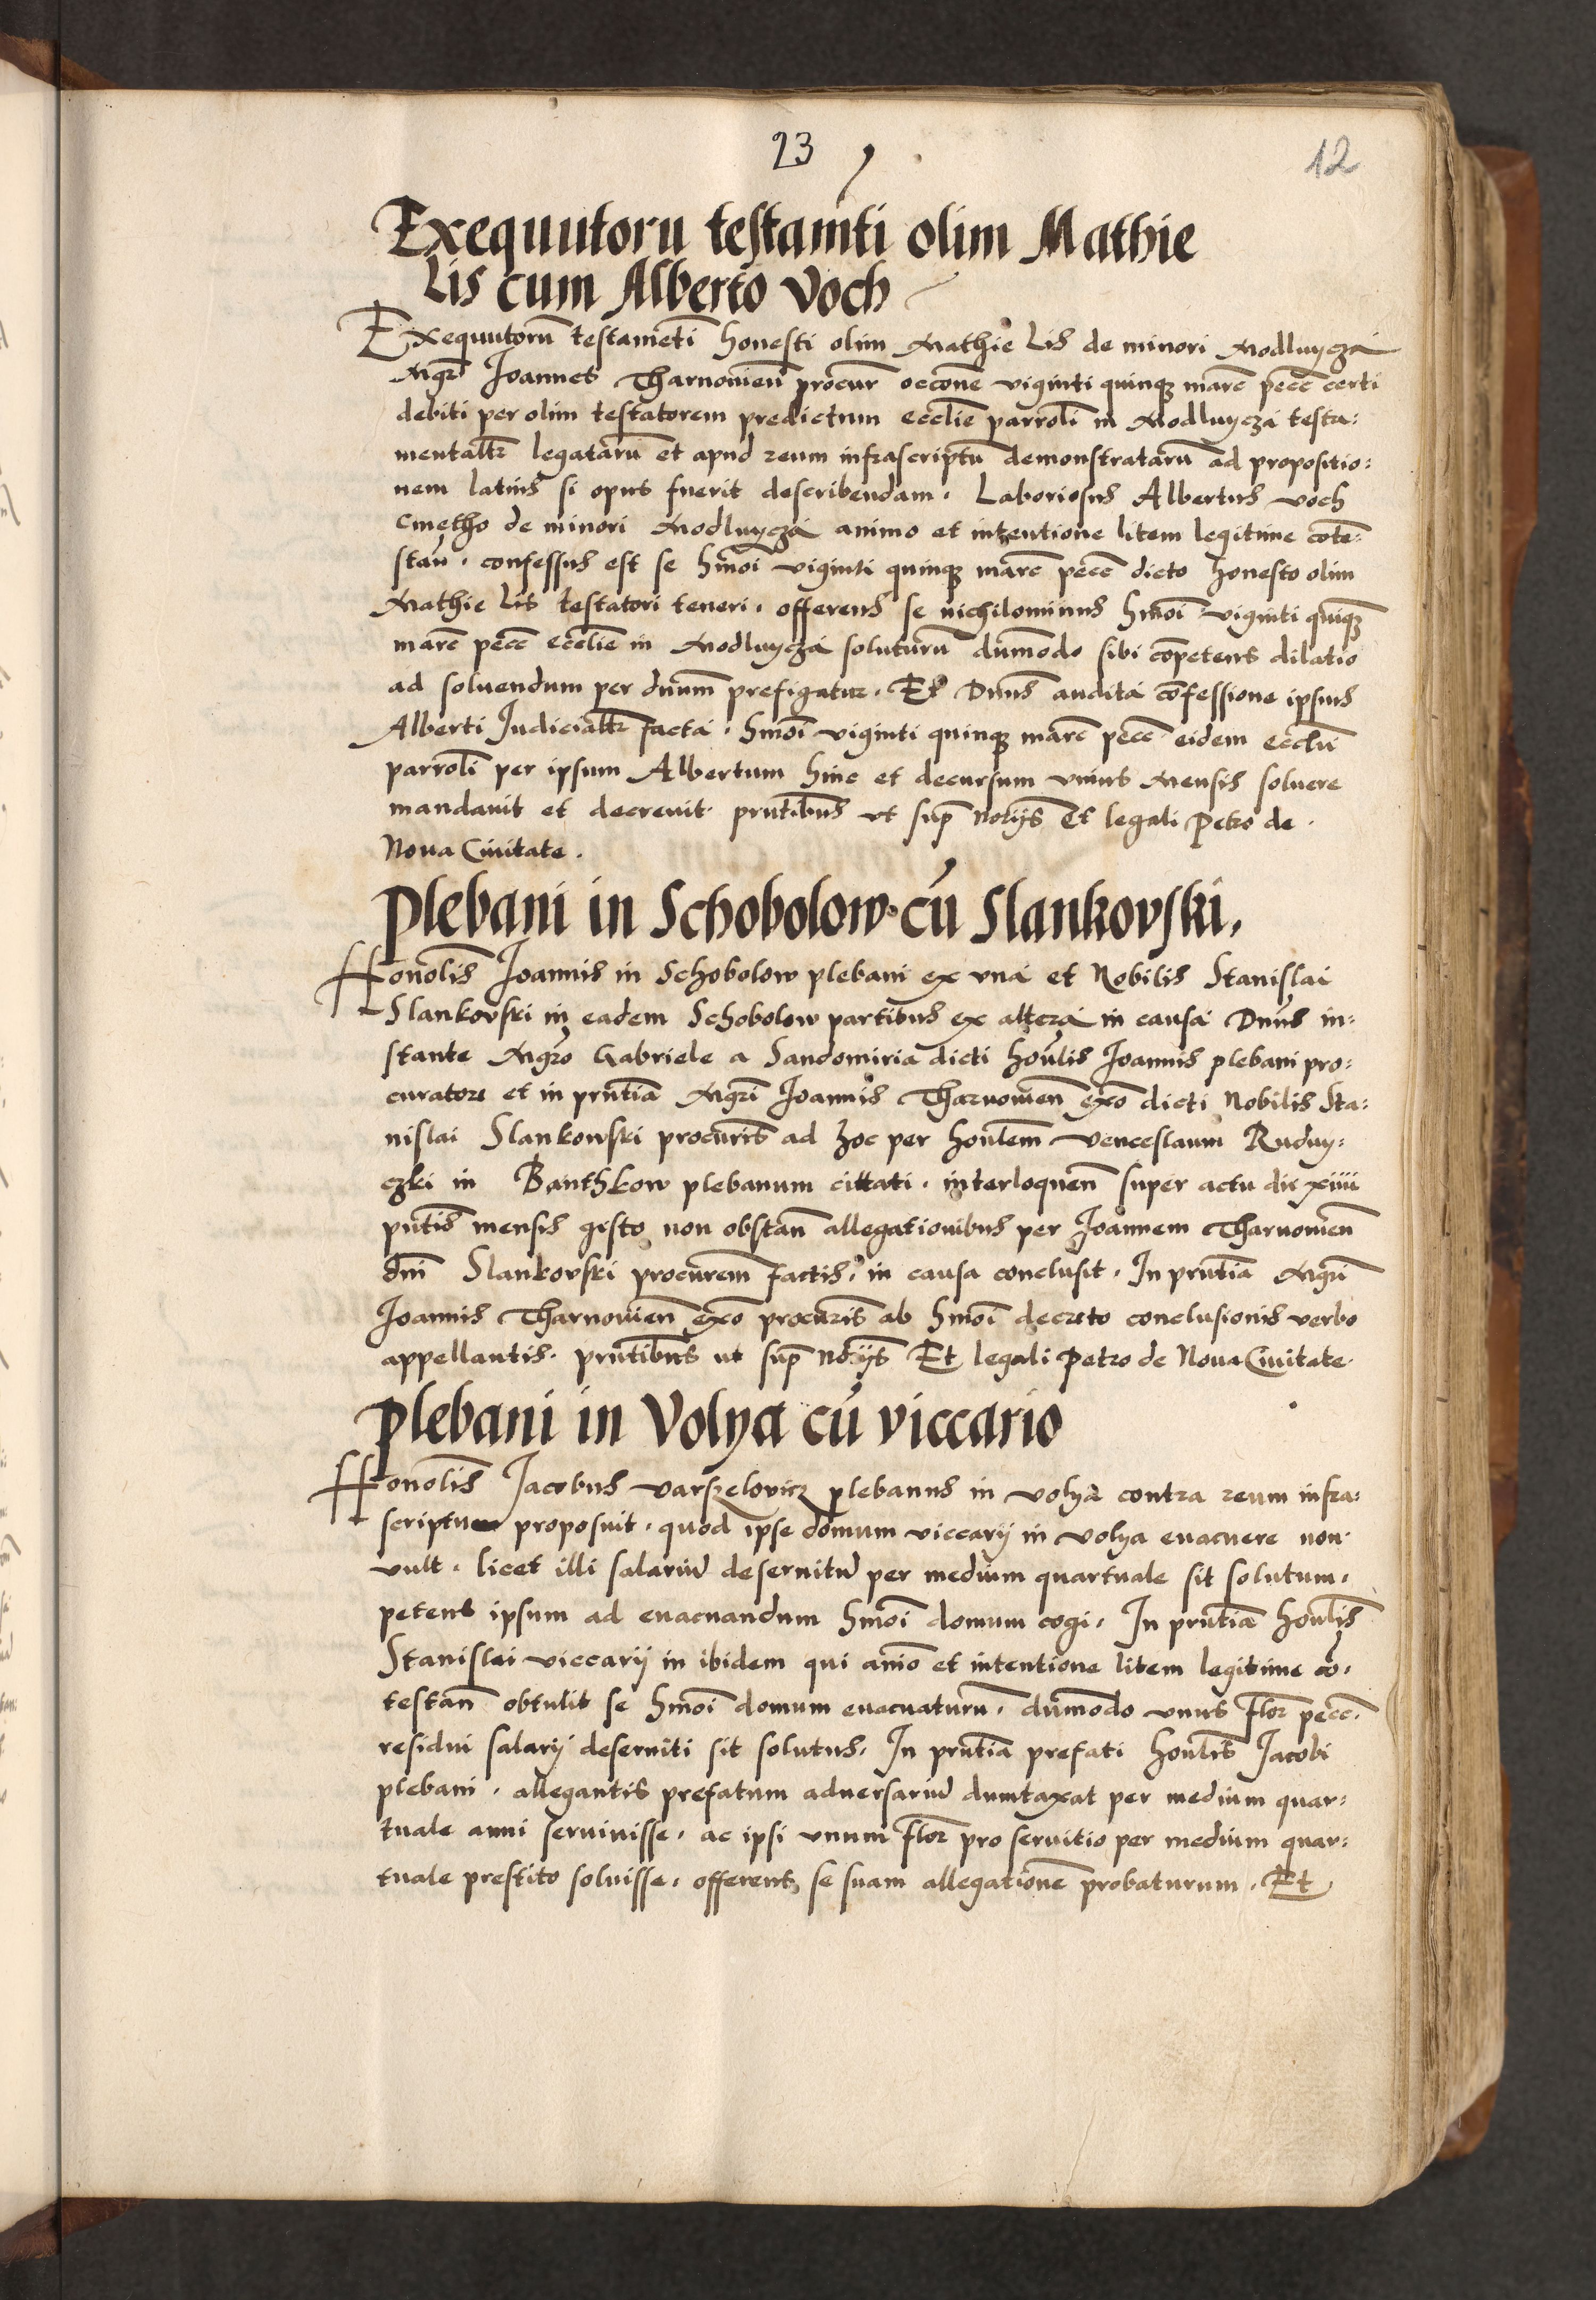 23
12
Exequutorū testam̄ti olim Mathie
Lis cum Alberto Voch
Exequutorū testamēti honesti olim Mathie Lis de minori Modluycza
Mgr̄ Joannes Tharnovien̄ procur̄ occōne viginti quinq; marc̄ pecc̄ certi
debiti per olim testatorem predictum eccliē parrolī in Modluycza testa:
mentalr̄ legatarū et apud reum infrascriptū demonstratarū ad propositio:
nem latius si opus fuerit describendam. Laboriosus Albertus Voch
Cmetho de minori Modluycza animo et intentione litem legitime cōte:
stan̄. confessus est se hmōi viginti quinq; marc̄ pecc̄ dicto honesto olim
Mathie Lis testatori teneri. offerens se nichilominus hmōi viginti quīq;
marc̄ pecc̄ eccliē in Modluycza soluturū dummodo sibi cōpetens dilatio
ad soluendum per dnūm prefigatur. Et Dnūs audita cōfessione ipsius
Alberti Judicialr̄ facta. hmōi viginti quinq; marc̄ pecc̄ eidem eccliē
parrolī per ipsum Albertum hinc et decursum unius Mensis soluere
mandauit et decreuit. pn̄tibus ut sup̄ notijs Et legali Petro de
Noua Ciuitate.
Plebani in Schobolow cū Slankovski.
Honolis̄ Joannis in Schobolow plebani ex una et Nobilis Stanislai
Slankovski in eadem Schobolow partibus ex altera in causa Dnūs in:
stante Mgrō Gabriele a Sandomiria dicti honlis̄ Joannis plebani pro:
curatore et in pn̄tia Mgrī Joannis Tharnovien̄ exō dicti Nobilis Sta:
nislai Slankowski procuris̄ ad hoc per honlem̄ Venceslaum Ruduy:
czki in Banthkow plebanum cittati. interloquen̄ super actu die xiiii
pn̄tis mensis gesto non obstan̄ allegationibus per Joannem Tharnovien̄
dnī Slankovski procurem̄ factis. in causa conclusit. In pn̄tia Mgrī
Joannis Tharnovien̄ exō procuris̄ ab hmōi decreto conclusionis verbo
appellantis. pn̄tibus ut sup̄ notijs Et legali Petro de Noua Ciuitate.
Plebani in Volya cū viccario
Honolis̄ Jacobus Varszelovicz plebanus in Volya contra reum infra:
scriptum proposuit. quod ipse domum viccarij in Volya euacuere non
vult. licet illi salariū deseruitū per medium quartuale sit solutum.
petens ipsum ad euacuandum hmōi domum cogi. In pn̄tia honlis̄
Stanislai viccarij in ibidem qui anīo et intentione litem legitime cō:
testan̄ obtulit se hmōi domum euacuaturū. dummodo unus flor̄ pecc̄.
residui salarij deseruiti sit solutus. In pn̄tia prefati honlis̄ Jacobi
plebani. allegantis prefatum aduersariū dumtaxat per medium quar:
tuale anni seruiuisse. ac ipsi unum flor̄ pro seruitio per medium quar:
tuale prestito soluisse. offerens se suam allegationē probaturum. Et